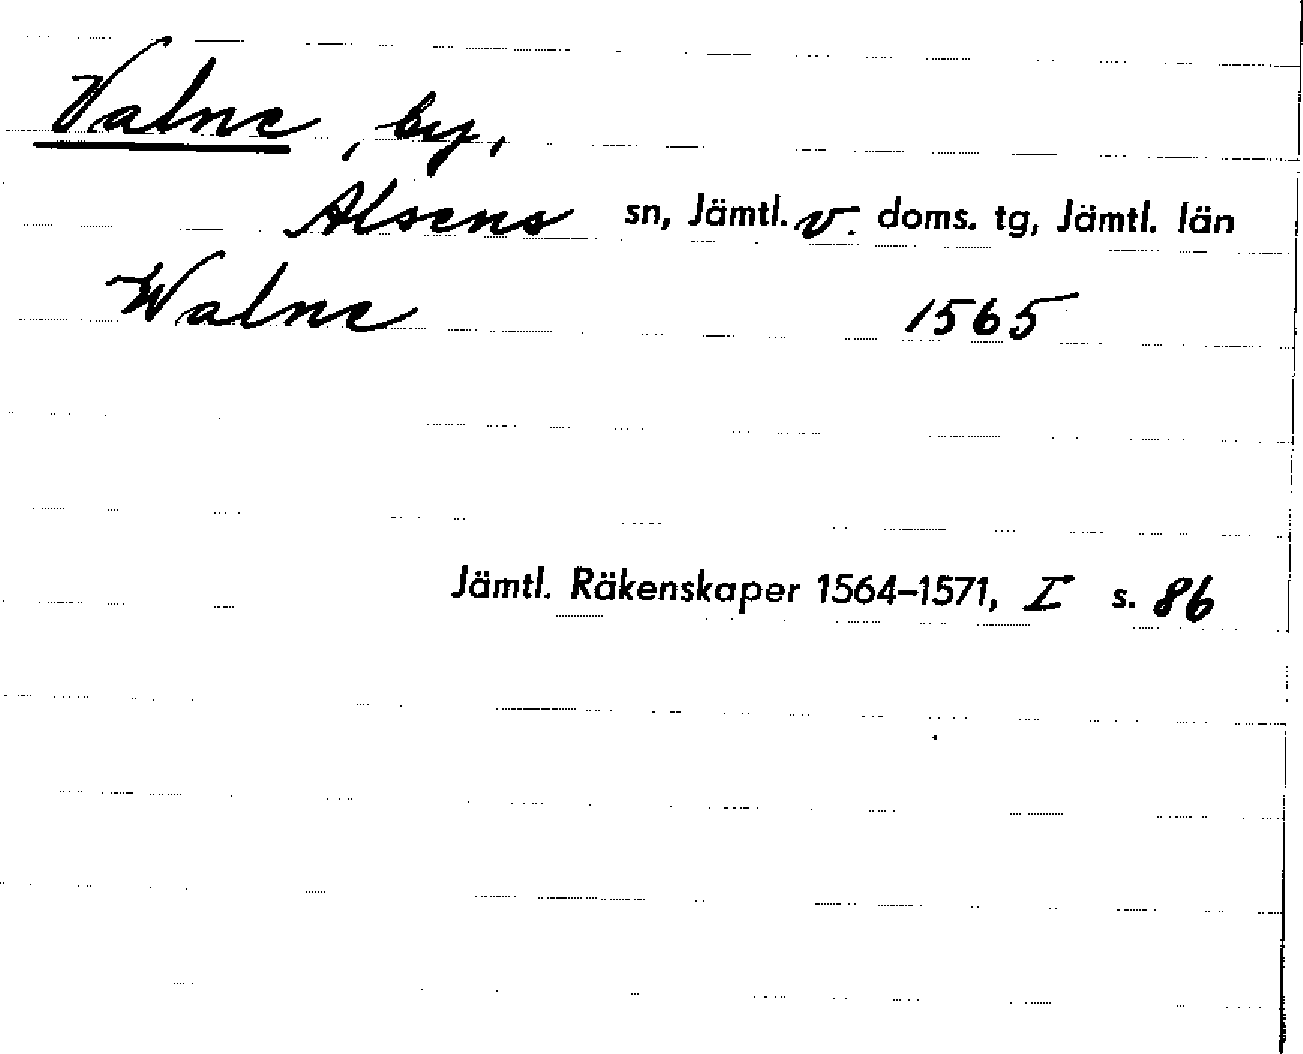 Valne, by,
Alsens sn, Jämtl. v. doms. tg, Jämtl. län
Walne 1565
Jämtl. Räkenskaper 1564–1571, I s. 86